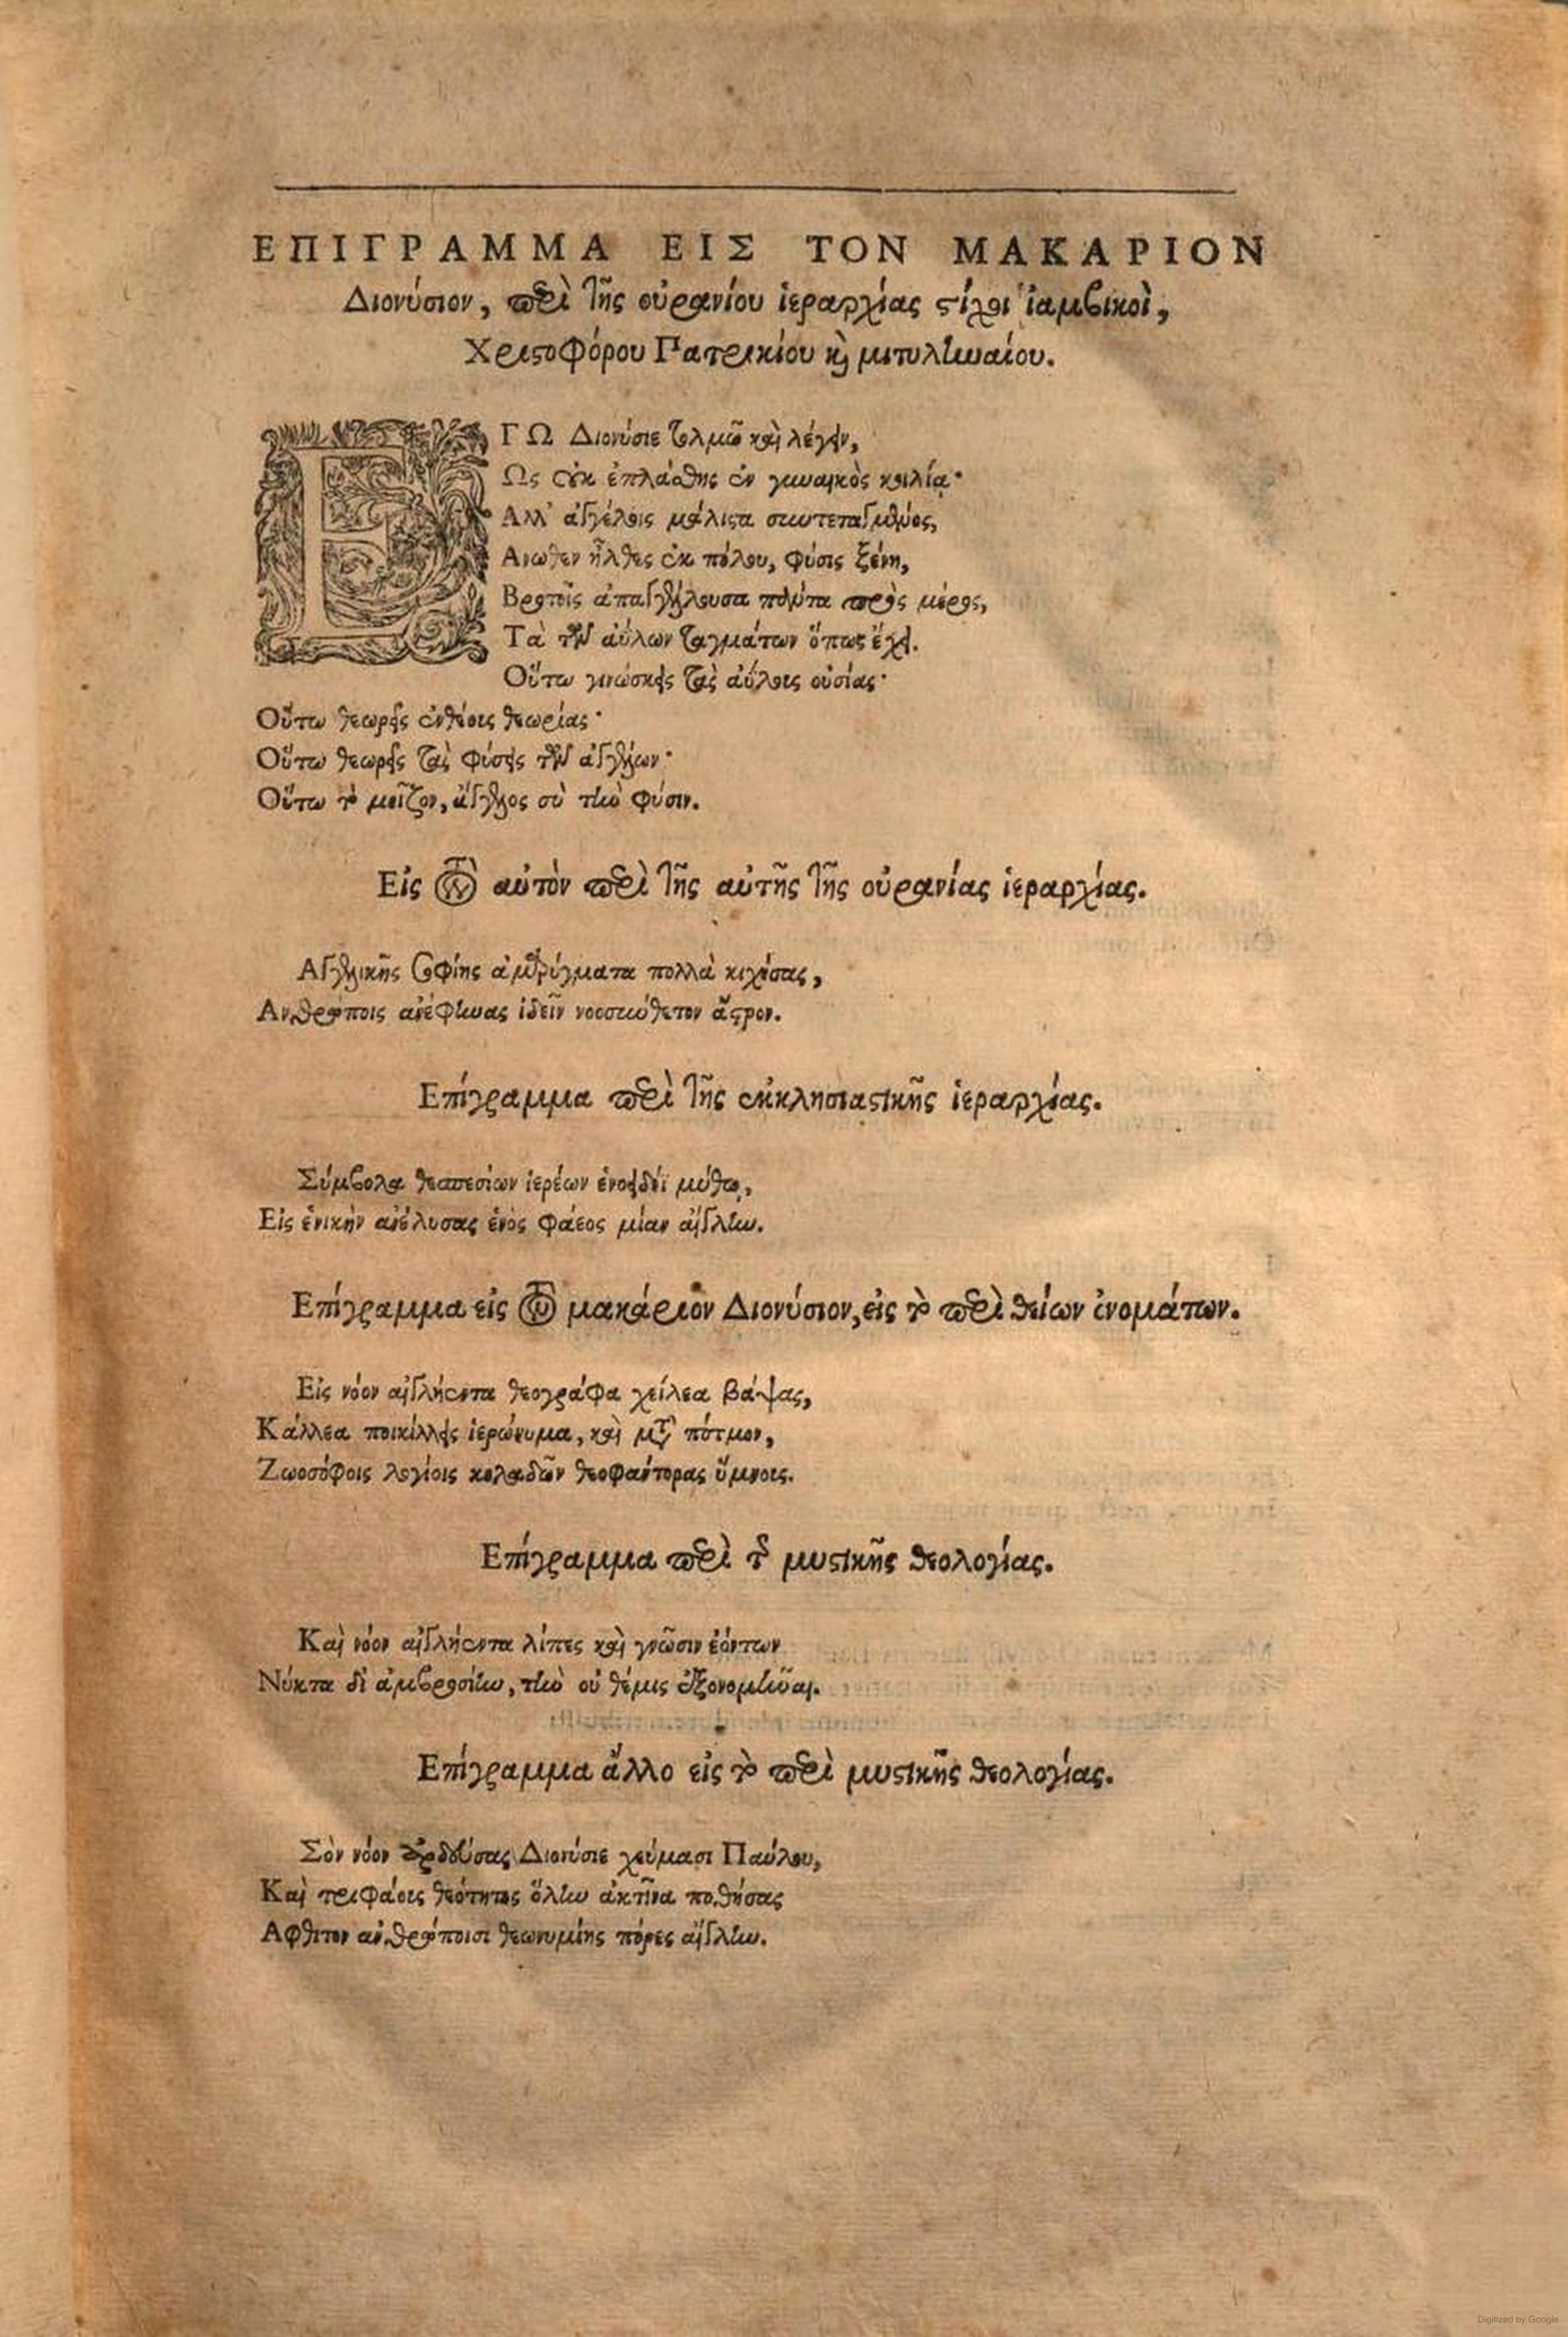 ΕΠΙΓΡΑΜΜΑ ΕΙΣ ΤΟΝ ΜΑΚΑΡΙΟΝ
Διονύσιον, περὶ τῆς οὐρανίου ἱεραρχίας ϛίχοι ἰαμβικοὶ,
Χριϛοφόρου Πατρικίου καὶ μιτυληναίου.
ΕΓΩ Διονύσιε τολμῶ καὶ λέγειν,
Ως οὐκ ἐπλάσθης ἐν γυναικὸς κοιλίᾳ·
Αλλ' ἀγγέλοις μάλιϛα συντεταγμένος,
Ανωθεν ἦλθες ἐκ πόλου, φύσις ξένη,
Βροτοῖς ἀπαγγέλουσα πάντα πρὸς μέρος,
Τὰ τῶν ἀύλων ταγμάτων ὅπως ἔχει.
Οὕτω γινώσκεις τὰς ἀύλοις οὐσίας·
Οὕτω θεωρεῖς ἐνθέοις θεωρίας·
Οὕτω θεωρεῖς τὰς φύσεις τῶν ἀγγέλων·
Οὕτω τὸ μεῖζον, ἄγγελος σὺ τὴν φύσιν.
Εἰς τὸν αὐτὸν περὶ τῆς αὐτῆς τῆς οὐρανίας ἱεραρχίας.
Αγγελικῆς σοφίης ἀμαρύγματα πολλὰ κιχήσας,
Ανθρώποις ἀνέφηνας ἰδεῖν νοοσύνθετον ἄϛρον.
Επίγραμμα περὶ τῆς ἐκκλησιαϛικῆς ἱεραρχίας.
Σύμβολα θεσπεσίων ἱερέων ἑνοειδέϊ μύθῳ,
Εἰς ἑνικὴν ἀνέλυσας ἑνὸς φάεος μίαν αἴγλην.
Επίγραμμα εἰς τὸν μακάριον Διονύσιον, εἰς τὸ περὶ θείων ὀνομάτων.
Εἰς νόον αἰγλήεντα θεογράφα χείλεα βάψας,
Κάλλεα ποικίλλεις ἱερώνυμα, καὶ μετὰ πότμον,
Ζωοσόφοις λογίοις κελαδῶν θεοφάντορας ὕμνοις.
Επίγραμμα περὶ τῆς μυϛικῆς θεολογίας.
Καὶ νόον αἰγλήεντα λίπες καὶ γνῶσιν ἐόντων
Νύκτα δἰ ἀμβροσίην, τὴν οὐ θέμις ἐξονομῆναι.
Επίγραμμα ἄλλο εἰς τὸ περὶ μυϛικῆς θεολογίας.
Σὸν νόον ἀρδεύσας Διονύσιε χεύμασι Παύλου,
Καὶ τριφάοις θεότητος ὅλην ἀκτῖνα ποθήσας
Αφθιτον ἀνθρώποισι θεωνυμίης πόρες αἴγλην.
Digitized by Google